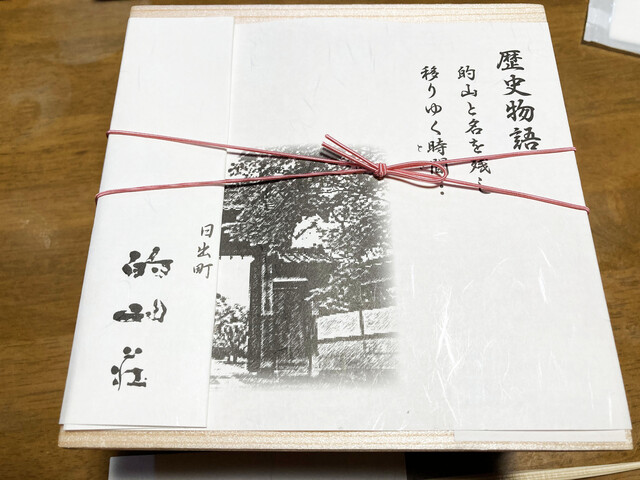 歴史物語
的山と名を残し…
移りゆく時間…
と
日出町
的山荘